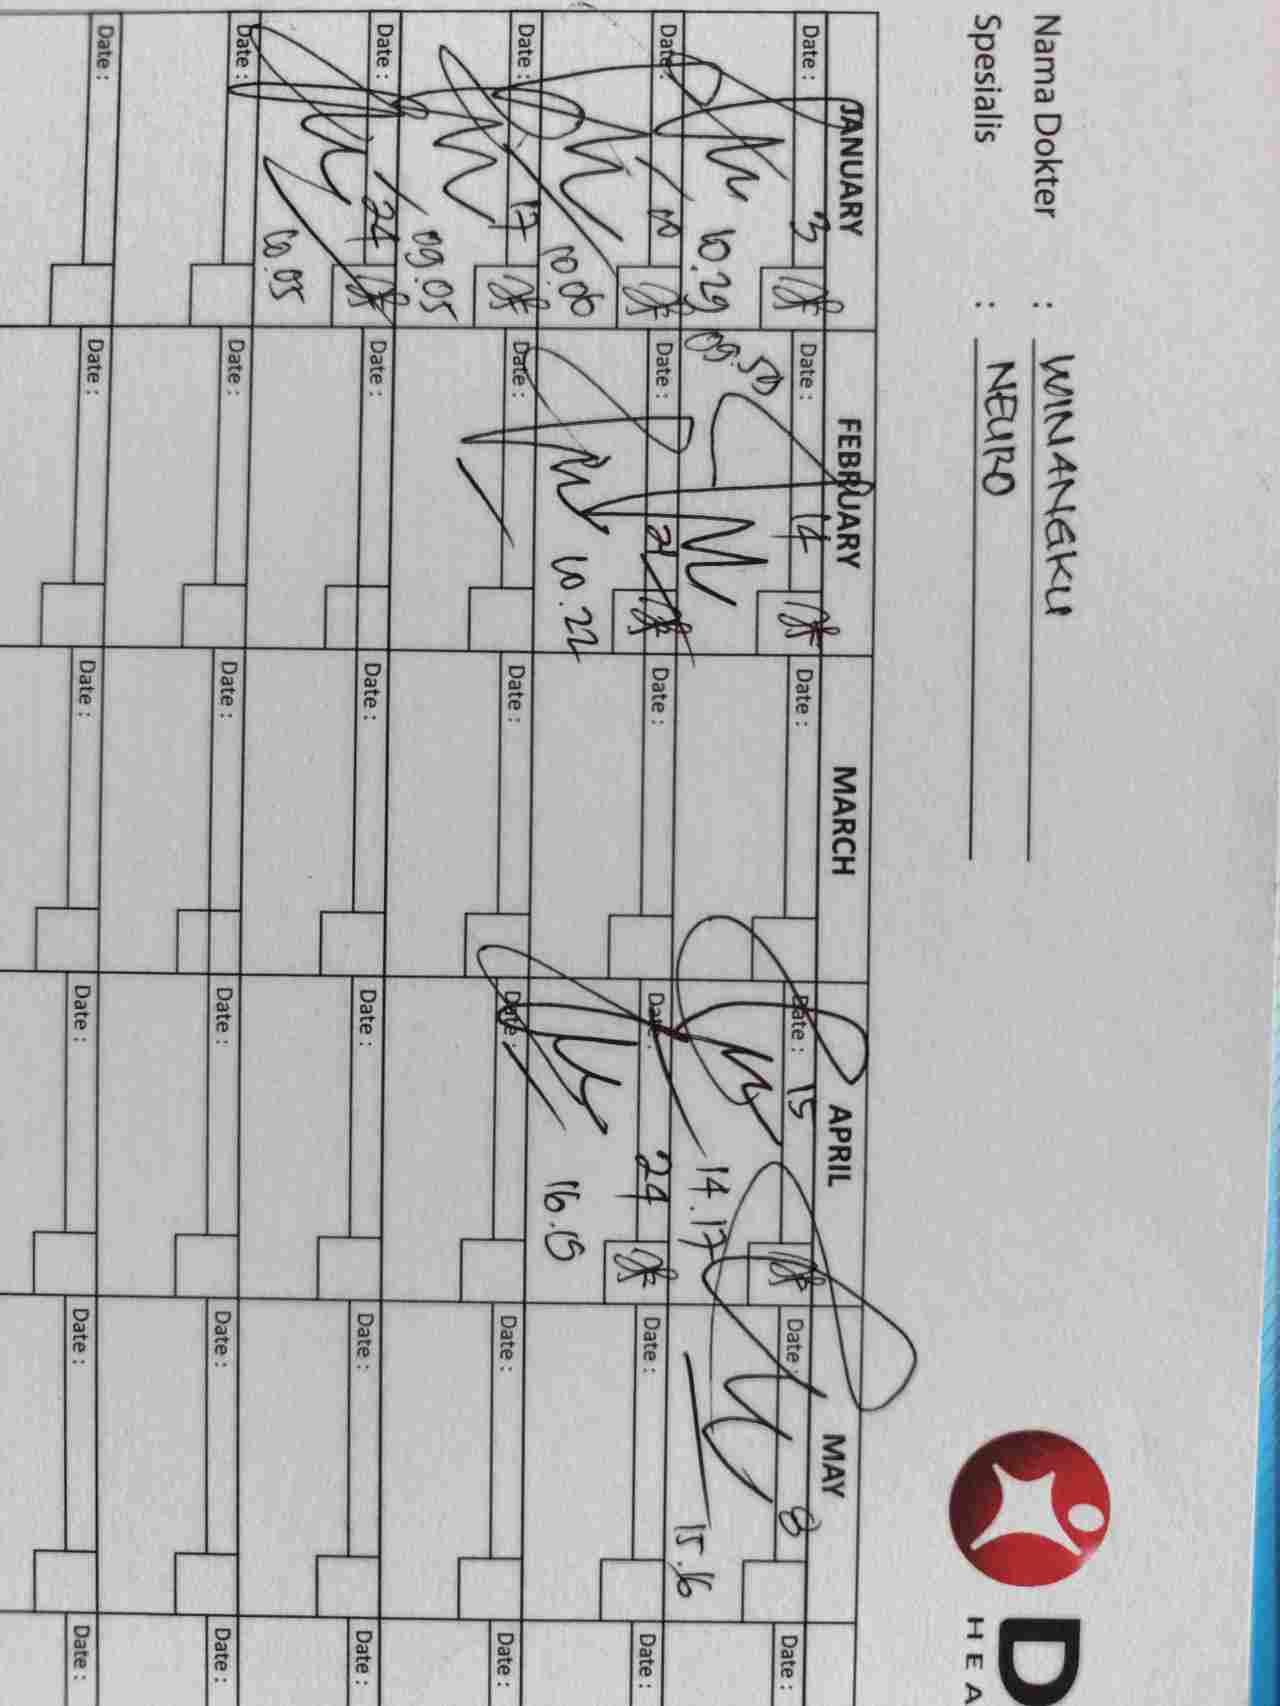 Nama Dokter : WINANGKU
Spesialis : NEURO
D
HEA
JANUARY FEBRUARY MARCH APRIL MAY
Date : 3 Date : 14 Date : Date : 15 Date : 8 Date :
10.29 09.50 14.17 15.16
Date : Date : 21 Date : Date : 24 Date : Date :
10.00 10.22 16.15
Date : 17 Date : Date : Date : Date : Date :
09.05
Date : 24 Date : Date : Date : Date : Date :
10.05
Date : Date : Date : Date : Date : Date :
Date : Date : Date : Date : Date : Date :